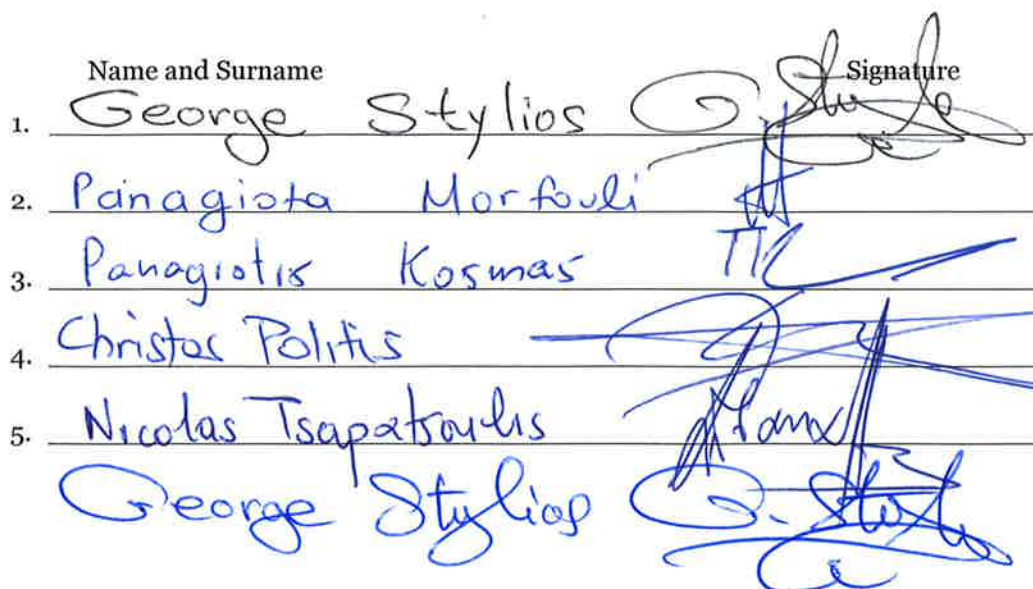 Name and Surname Signature
1. George Stylios G. Stylio
2. Panagiota Morfouli
3. Panagiotis Kosmas ΠΚ
4. Christos Politis
5. Nicolas Tsapatsoulis
George Stylios G. Stylio